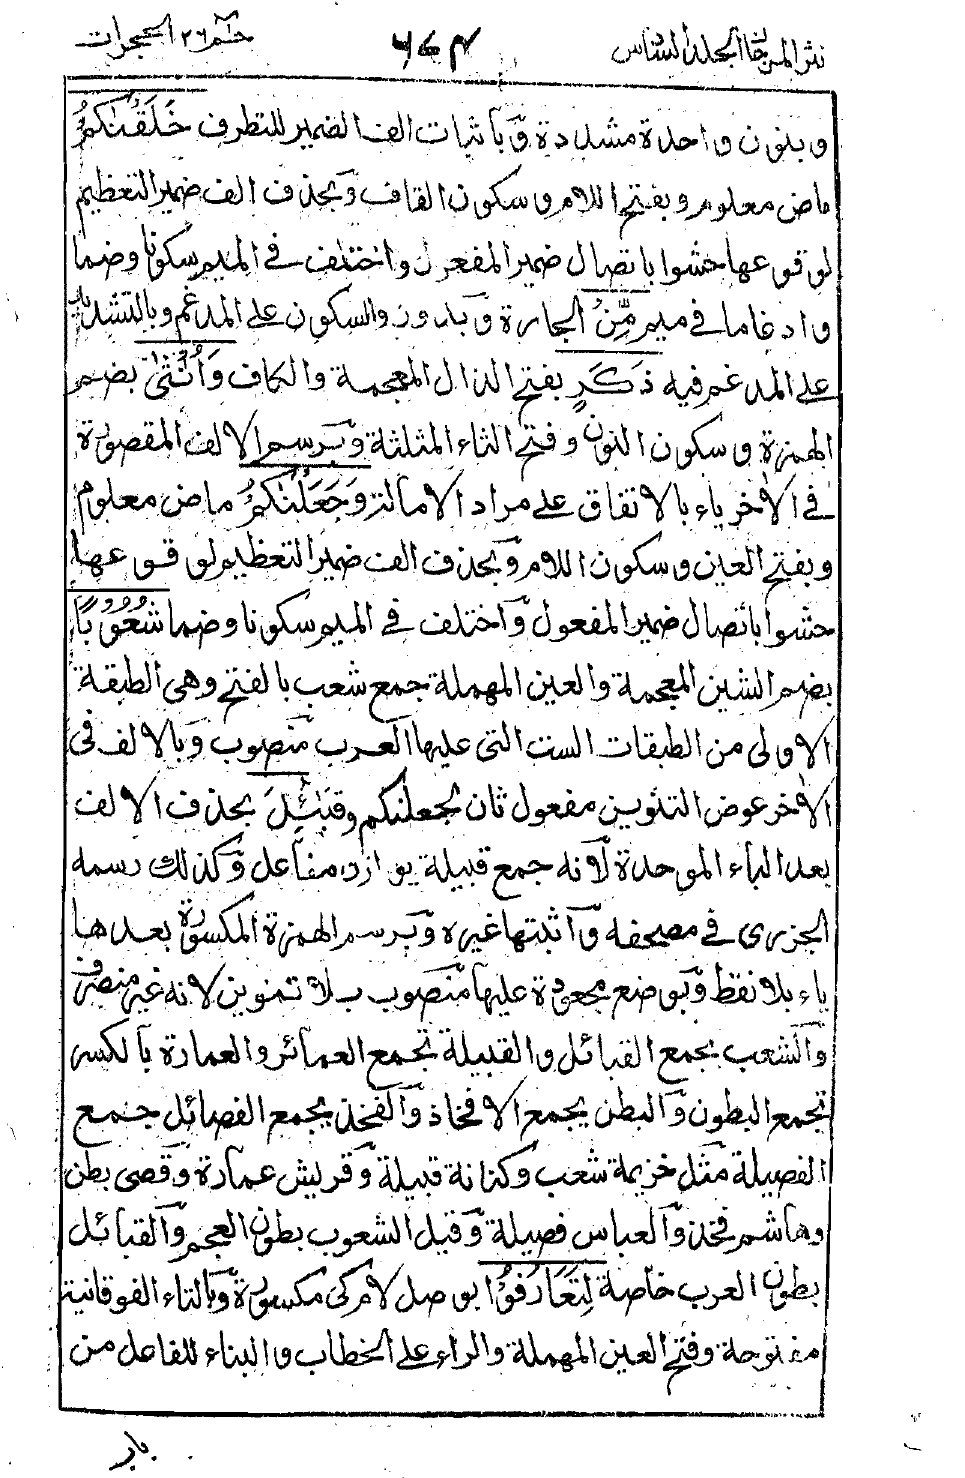 نثر المرجان المجلد السادس ٦٧٤ حٰم ٢٦ الحجرات
وبنون واحدة مشددة وّبأثبات الف الضمير للتطرف خَلَقْنٰكُمْ
ماض معلوم وبفتح اللام وسكون القاف وّبحذف الف ضمير التعظيم
لوقوعها حشوا باتصال ضمير المفعول واختلف في الميم سكونا وضما
وادغاما في ميم مِّنْ الجارة وّبدون والسكون على المدغم وبالتشديد
على المدغم فيه ذَكَرٍ بفتح الذال المعجمة والكاف وَاُنْثٰى بضم
الهمزة وسكون النون وفتح الثاء المثلثة وّبرسم الالف المقصورة
في الاٰخر ياء بالاتفاق على مراد الامالة وَجَعَلْنٰكُمْ ماض معلوم
وبفتح العين وسكون اللام وّبحذف الف ضمير التعظيم لوقوعها
حشوا باتصال ضمير المفعول وّاختلف في الميم سكونا وضما شُعُوْبًا
بضم الشين المعجمة والعين المهملة جمع شعب بالفتح وهى الطبقة
الاولى من الطبقات الست التى عليها العرب منصوب وّبالالف فى
الاٰخر عوض التنوين مفعول ثان لجعلنكم وقَبَٓائِلَ بحذف الالف
بعد الباء الموحدة لانه جمع قبيلة يوازن مفاعل وّكذلك رسمه
الجزرى في مصحفه وّاثبتها غيره وّبرسم الهمزة المكسورة بعدها
ياء بلا نقط وّبوضع مجعودة عليها منصوب بلا تنوين لانه غير منصرف
والشعب يجمع القبائل والقبيلة تجمع العمائر والعمارة بالكسر
تجمع البطون وّالبطن يجمع الافخاذ وّالفخذ يجمع الفصائل جمع
الفصيلة مثل خزيمة شعب وكنانة قبيلة وّقريش عمارة وّقصى بطن
وهاشم فخذ وّالعباس فصيلة وّقيل الشعوب بطون العجم وّالقبائل
بطون العرب خاصة لِتَعَارَفُوْا بوصل لام كى مكسورة وّبالتاء الفوقانية
مفتوحة وفتح العين المهملة والراء على الخطاب والبناء للفاعل من
باب